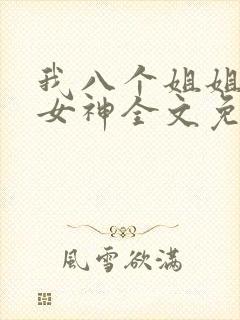 我八个姐姐
女神全文免
風雪欲滿